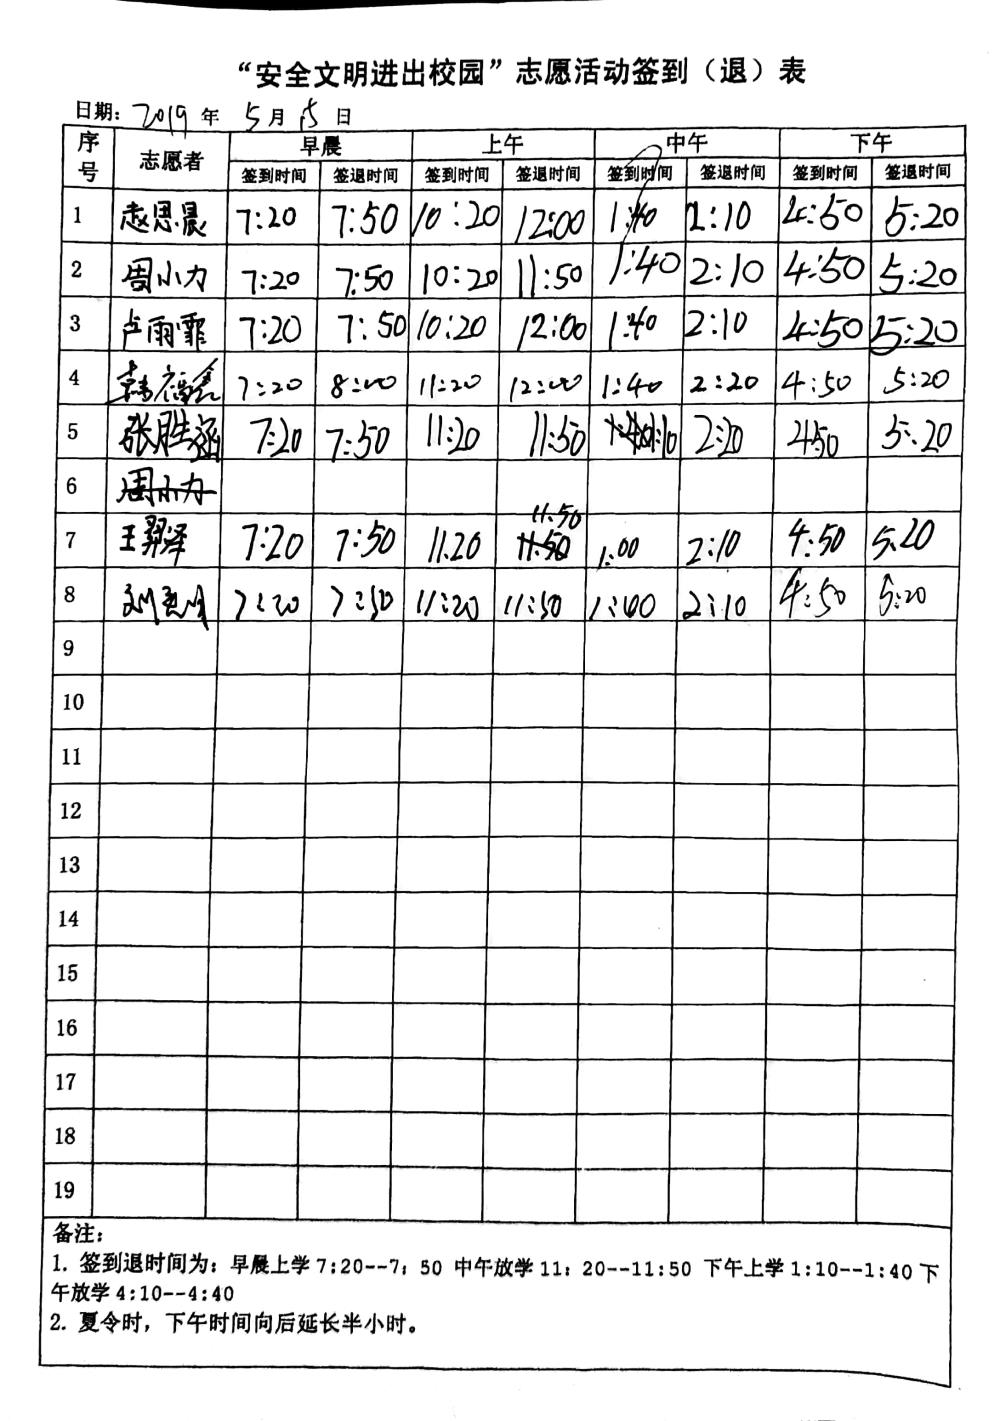 “安全文明进出校园”志愿活动签到（退）表
日期：2019 年 5 月 15 日
序号 志愿者 早晨 上午 中午 下午
签到时间 签退时间 签到时间 签退时间 签到时间 签退时间 签到时间 签退时间
1 赵思晨 7:20 7:50 10:20 12:00 1:40 2:10 4:50 5:20
2 周小力 7:20 7:50 10:20 11:50 1:40 2:10 4:50 5:20
3 卢雨霏 7:20 7:50 10:20 12:00 1:40 2:10 4:50 5:20
4 韩福鑫 7:20 8:00 11:20 12:00 1:40 2:20 4:50 5:20
5 张胜涵 7:20 7:50 11:20 11:50 1:10 2:20 450 5:20
6 周小力
11:50
7 王羿泽 7:20 7:50 11:20 11:50 1:00 2:10 4:50 5:20
8 刘 7:20 7:50 11:20 11:50 1:40 2:10 4:50 5:20
9
10
11
12
13
14
15
16
17
18
19
备注：
1. 签到退时间为：早晨上学 7:20--7：50 中午放学 11：20--11:50 下午上学 1:10--1:40 下
午放学 4:10--4:40
2. 夏令时，下午时间向后延长半小时。